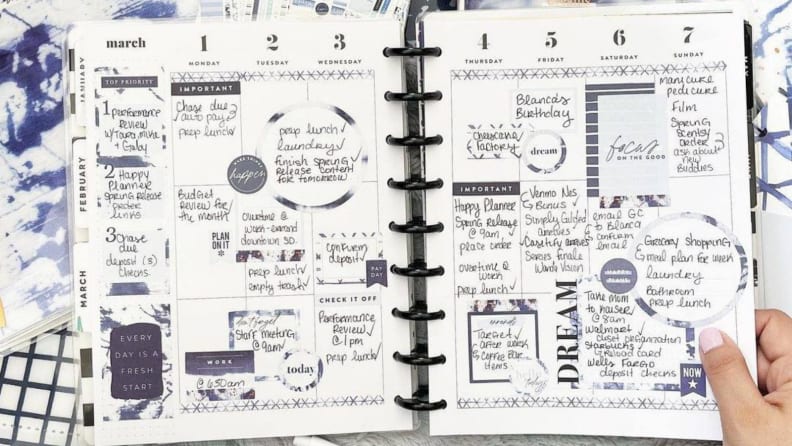 march
JANUARY
FEBRUARY
MARCH
TOP PRIORITY
1 Performance
Review
w/ Tara, Mike
+ Gaby
2 Happy
Planner
Spring Release
order
links
3 Chase
due
deposit (3)
checks.
EVERY
DAY IS A
FRESH
START
1
MONDAY
IMPORTANT
Chase due
auto pay
prep lunch
Budget
Review for
the month
PLAN
ON IT
WORK
@ 630am
2
TUESDAY
prep lunch
laundry
finish Spring
Release content
for tomorrow
MAKE THINGS
happen
overtime @
work-errand
downtown SD.
prep lunch
empty trash
don't forget
Staff Meeting
@ 9am
today
3
WEDNESDAY
confirm
deposit
PAY
DAY
CHECK IT OFF
Performance
Review
@ 1pm
prep lunch
4
THURSDAY
cheesecake
factory
IMPORTANT
Happy Planner
Spring Release
@ 9am
place order
overtime @
work
prep lunch
errands
Target
after work
Coffee Bar
items
5
FRIDAY
Blanca's
Birthday
dream
Venmo Nes
Bonus
Simply Gilded
arrives
Casetify arrives
Series Finale
Wanda Vision
hello
today
DREAM
6
SATURDAY
focus
ON THE GOOD
email GC
to Blanca
confirm
email
Take mom
to
@ 8am
Walmart
closet organization
Starbucks
reload card
Wells Fargo
deposit checks
7
SUNDAY
manicure
pedicure
Film
Spring
Scentsy
order
ask about
new
Buddies
Grocery Shopping
meal plan for week
laundry
Bathroom
prep lunch
NOW